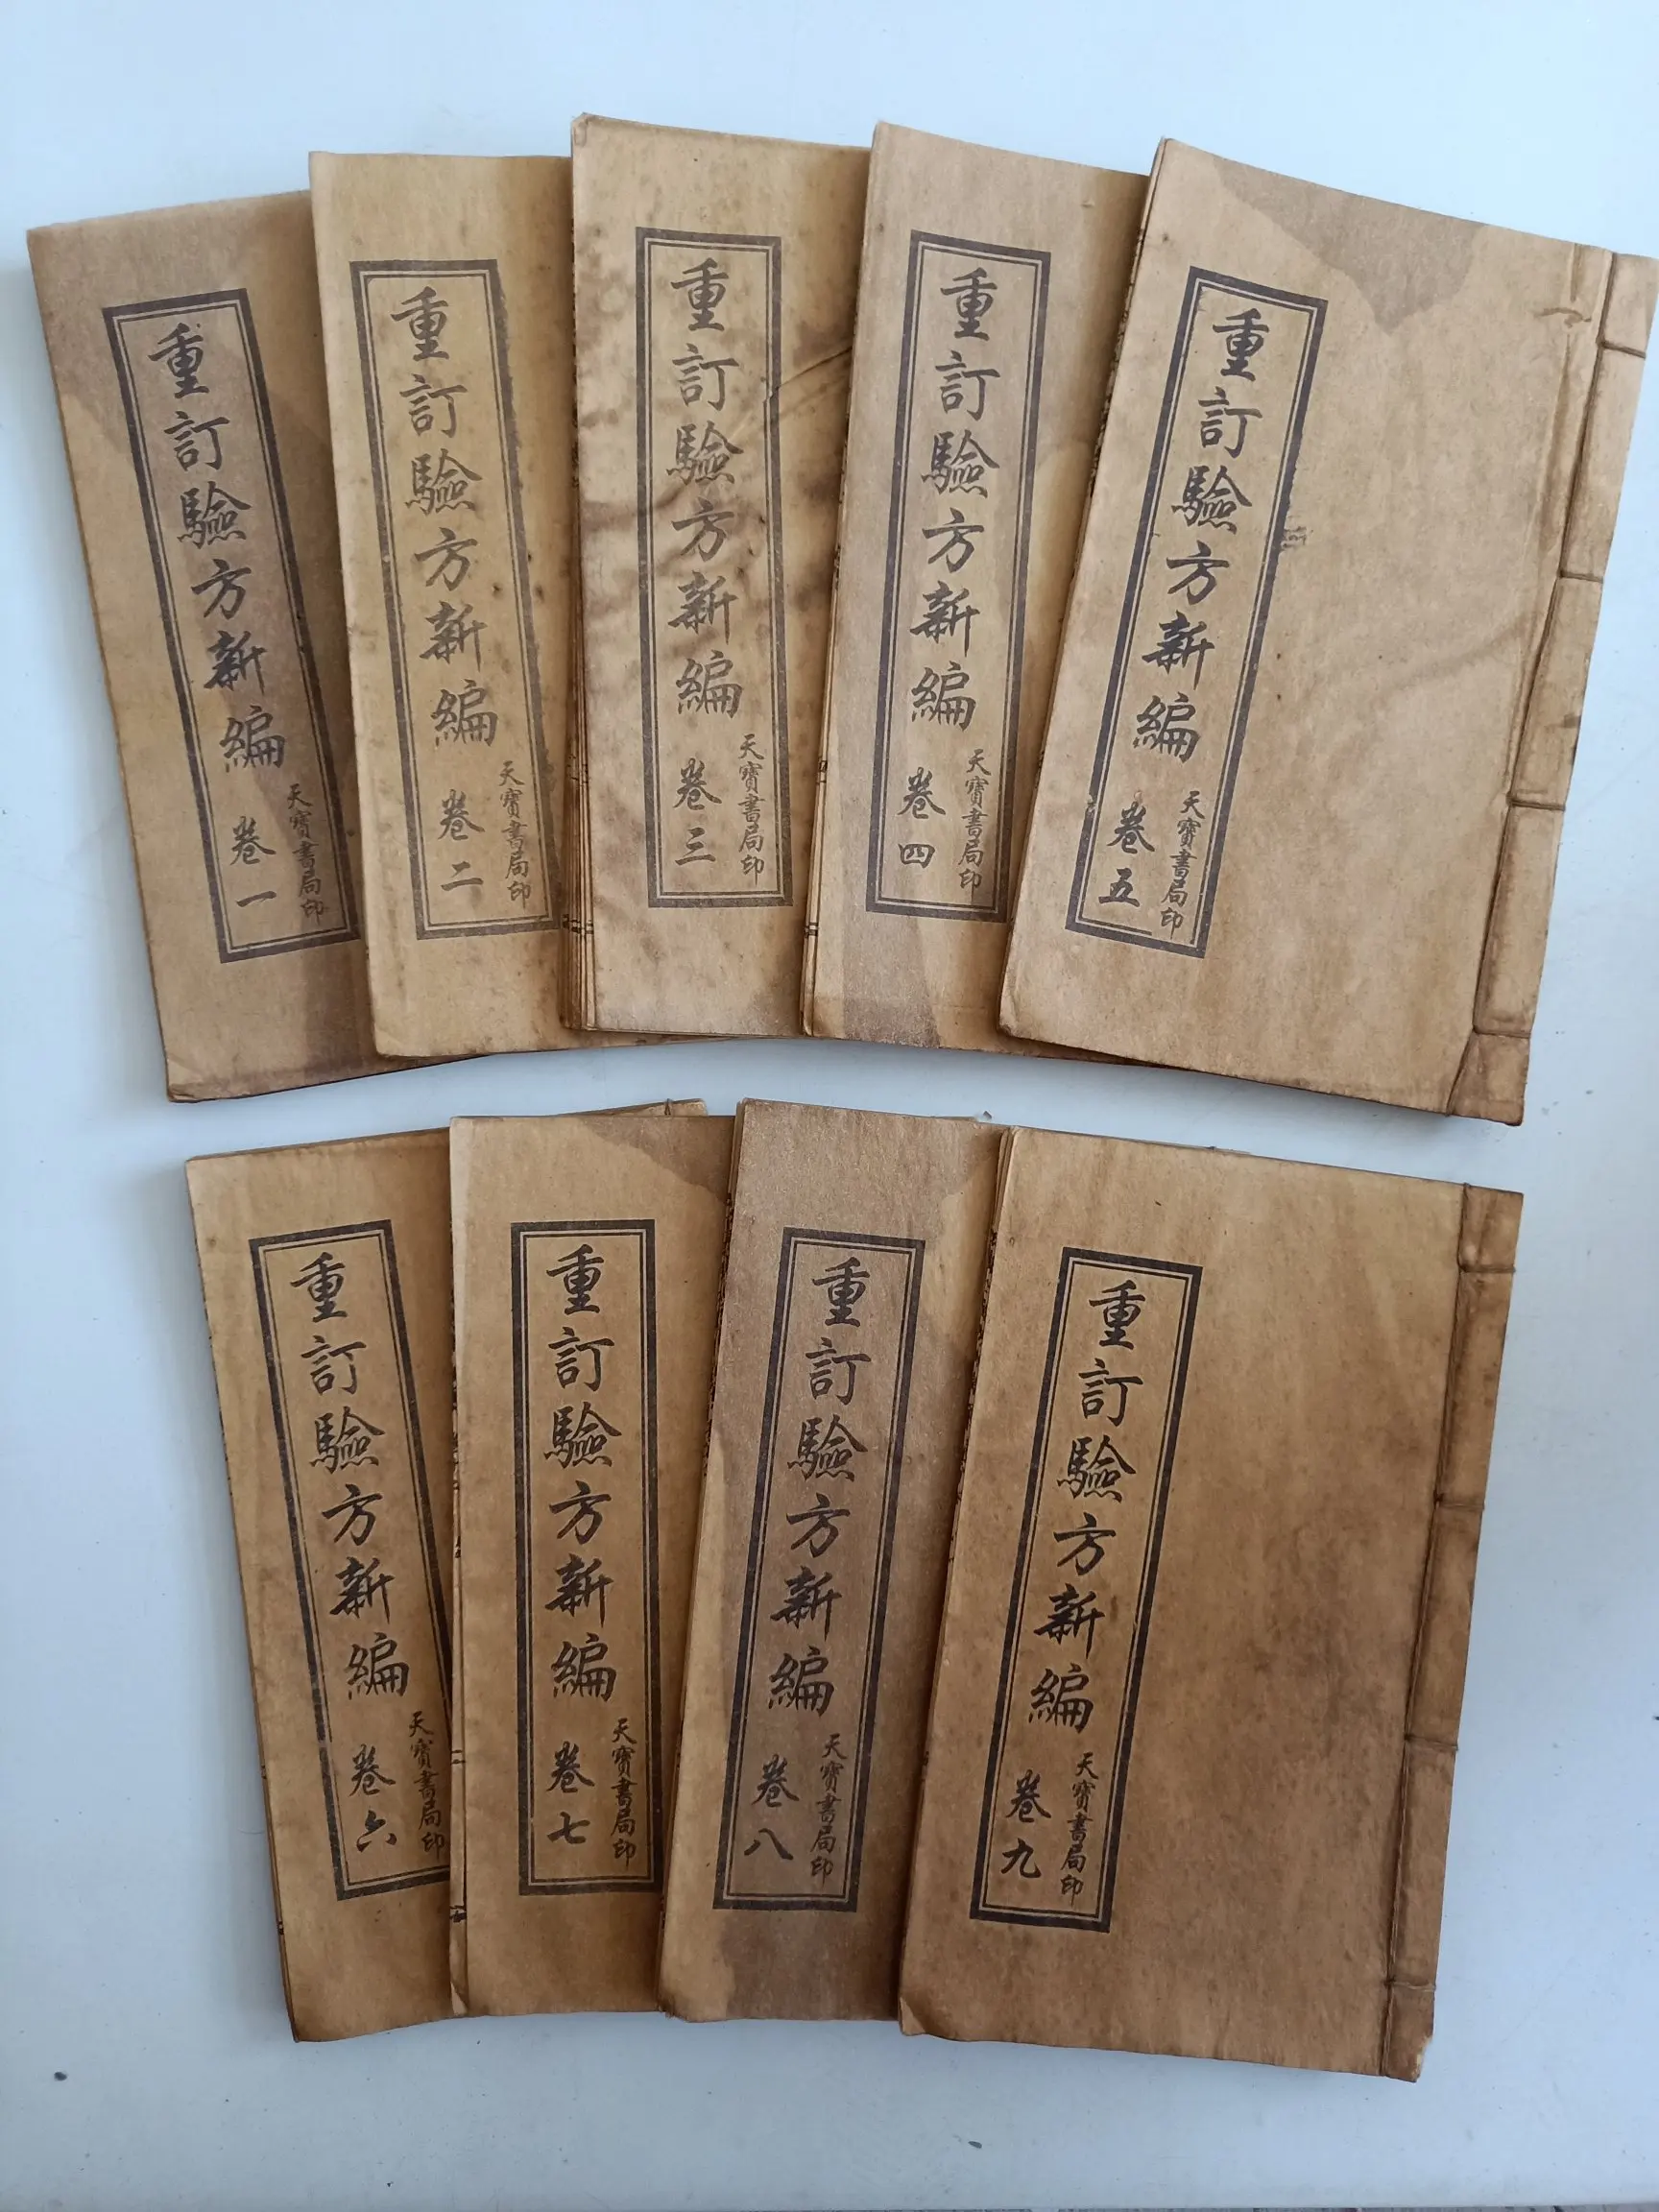 重訂驗方新編 卷一
天寶書局印
重訂驗方新編 卷二
天寶書局印
重訂驗方新編 卷三
天寶書局印
重訂驗方新編 卷四
天寶書局印
重訂驗方新編 卷五
天寶書局印
重訂驗方新編 卷六
天寶書局印
重訂驗方新編 卷七
天寶書局印
重訂驗方新編 卷八
天寶書局印
重訂驗方新編 卷九
天寶書局印